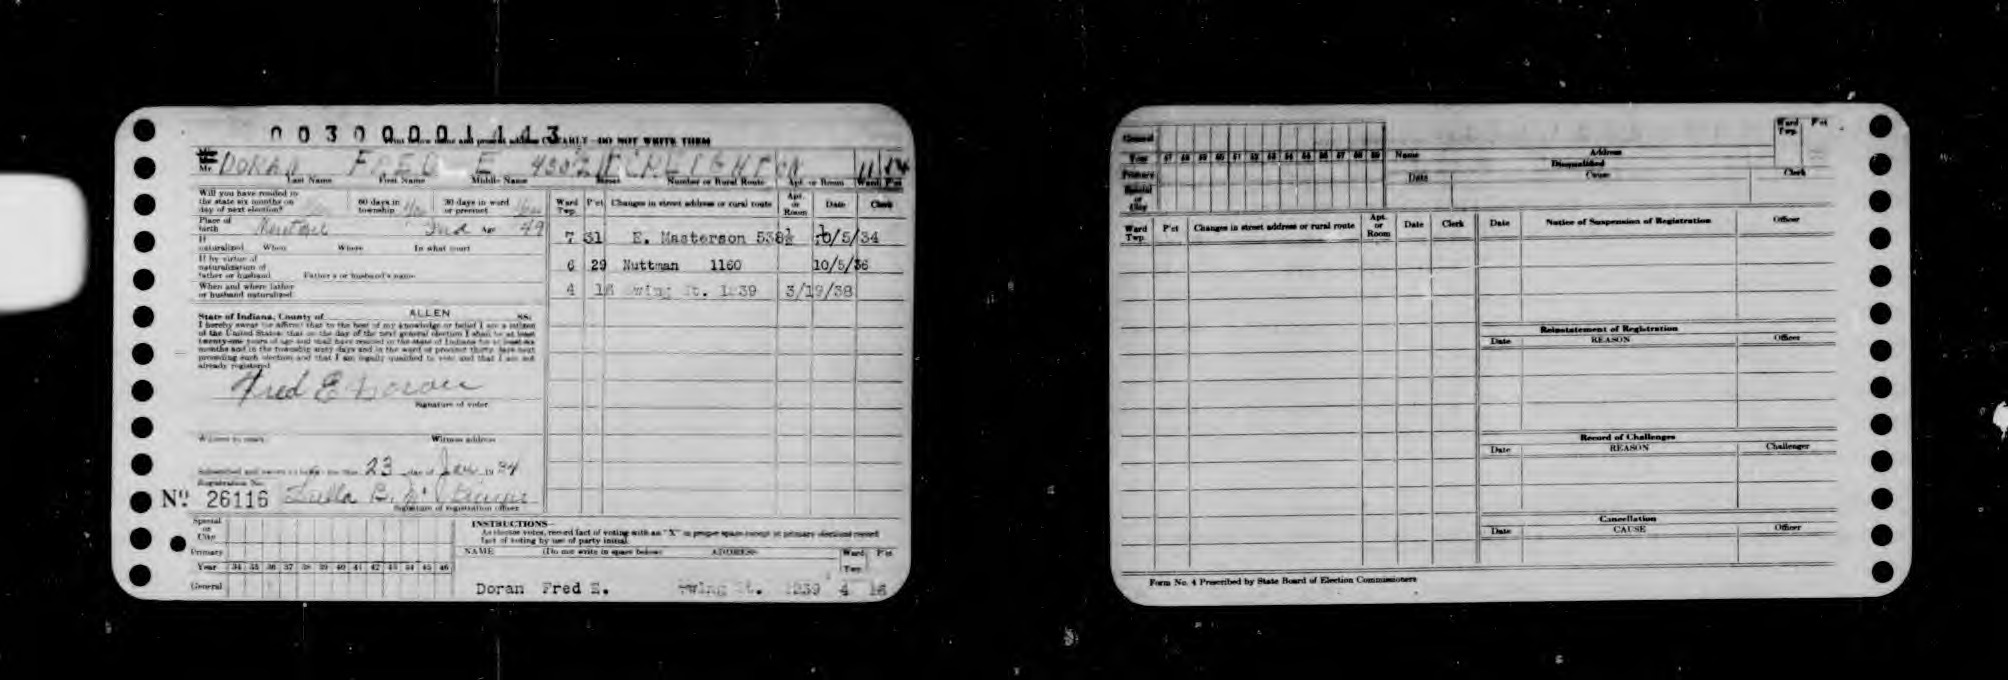 0 0 3 0 0 0 0 1 1 4 3
DO NOT WRITE THEM
Mr. DORAN FRED E CREIGHTON 11 14
Last Name First Name Middle Name Street Number or Rural Route Apt. or Room Ward P'ct
Will you have resided in the state six months on day of next election? 60 days in township 30 days in ward or precinct
Place of birth Ind Age 49
If naturalized When Where In what court
If by virtue of naturalization of father or husband Father's or husband's name
When and where father or husband naturalized
State of Indiana, County of ALLEN SS:
I hereby swear (or affirm) that to the best of my knowledge or belief I am a citizen
of the United States; that on the day of the next general election I shall be at least
twenty-one years of age and shall have resided in the state of Indiana for at least six
months and in the township sixty days and in the ward or precinct thirty days next
preceding such election and that I am legally qualified to vote and that I am not
already registered.
Fred E Doran
Signature of voter
Witness address
Subscribed and sworn to before me this 23 day of Jan 1934
Registration No.
No. 26116 Luella B.
Signature of registration officer
Ward Twp. P'ct Changes in street address or rural route Apt. or Room Date Clerk
7 31 E. Masterson 538½ 10/5/34
6 29 Nuttman 1160 10/5/36
4 16 Ewing St. 1239 3/19/38
Special or City
Primary
Year 34 35 36 37 38 39 40 41 42 43 44 45 46
General
INSTRUCTIONS—
As elector votes, record fact of voting with an "X" in proper space except in primary elections record
fact of voting by use of party initial.
NAME (Do not write in space below) ADDRESS Ward Twp. P'ct
Doran Fred E. Ewing St. 1239 4 16
General
Year 47 48 49 50 51 52 53 54 55 56 57 58 59
Primary
Special or City
Name Address Ward Twp. P'ct
Disqualified
Date Cause Clerk
Ward Twp. P'ct Changes in street address or rural route Apt. or Room Date Clerk
Date Notice of Suspension of Registration Officer
Reinstatement of Registration
Date REASON Officer
Record of Challenges
Date REASON Challenger
Cancellation
Date CAUSE Officer
Form No. 4 Prescribed by State Board of Election Commissioners